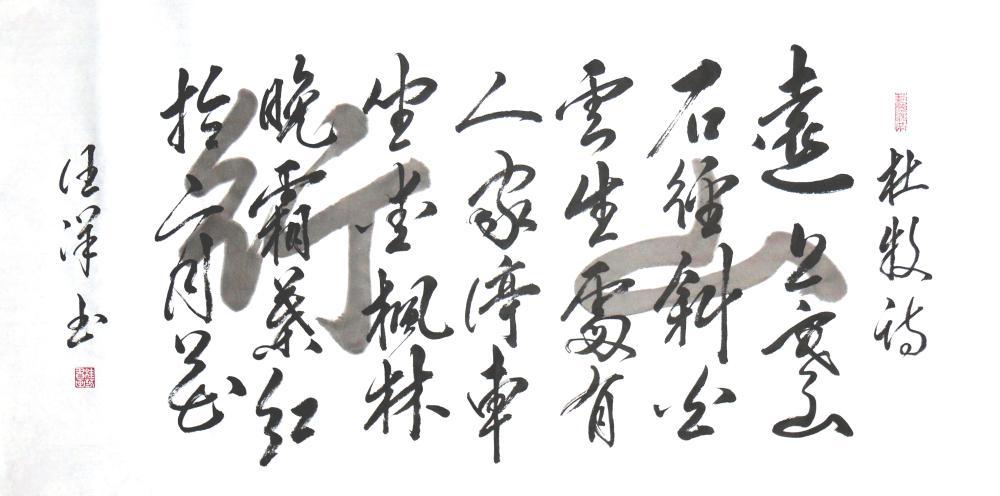 杜牧詩
遠上寒山
石徑斜白
雲生處有
人家停車
坐愛楓林
晚霜葉紅
於二月花
汪洋书
山行